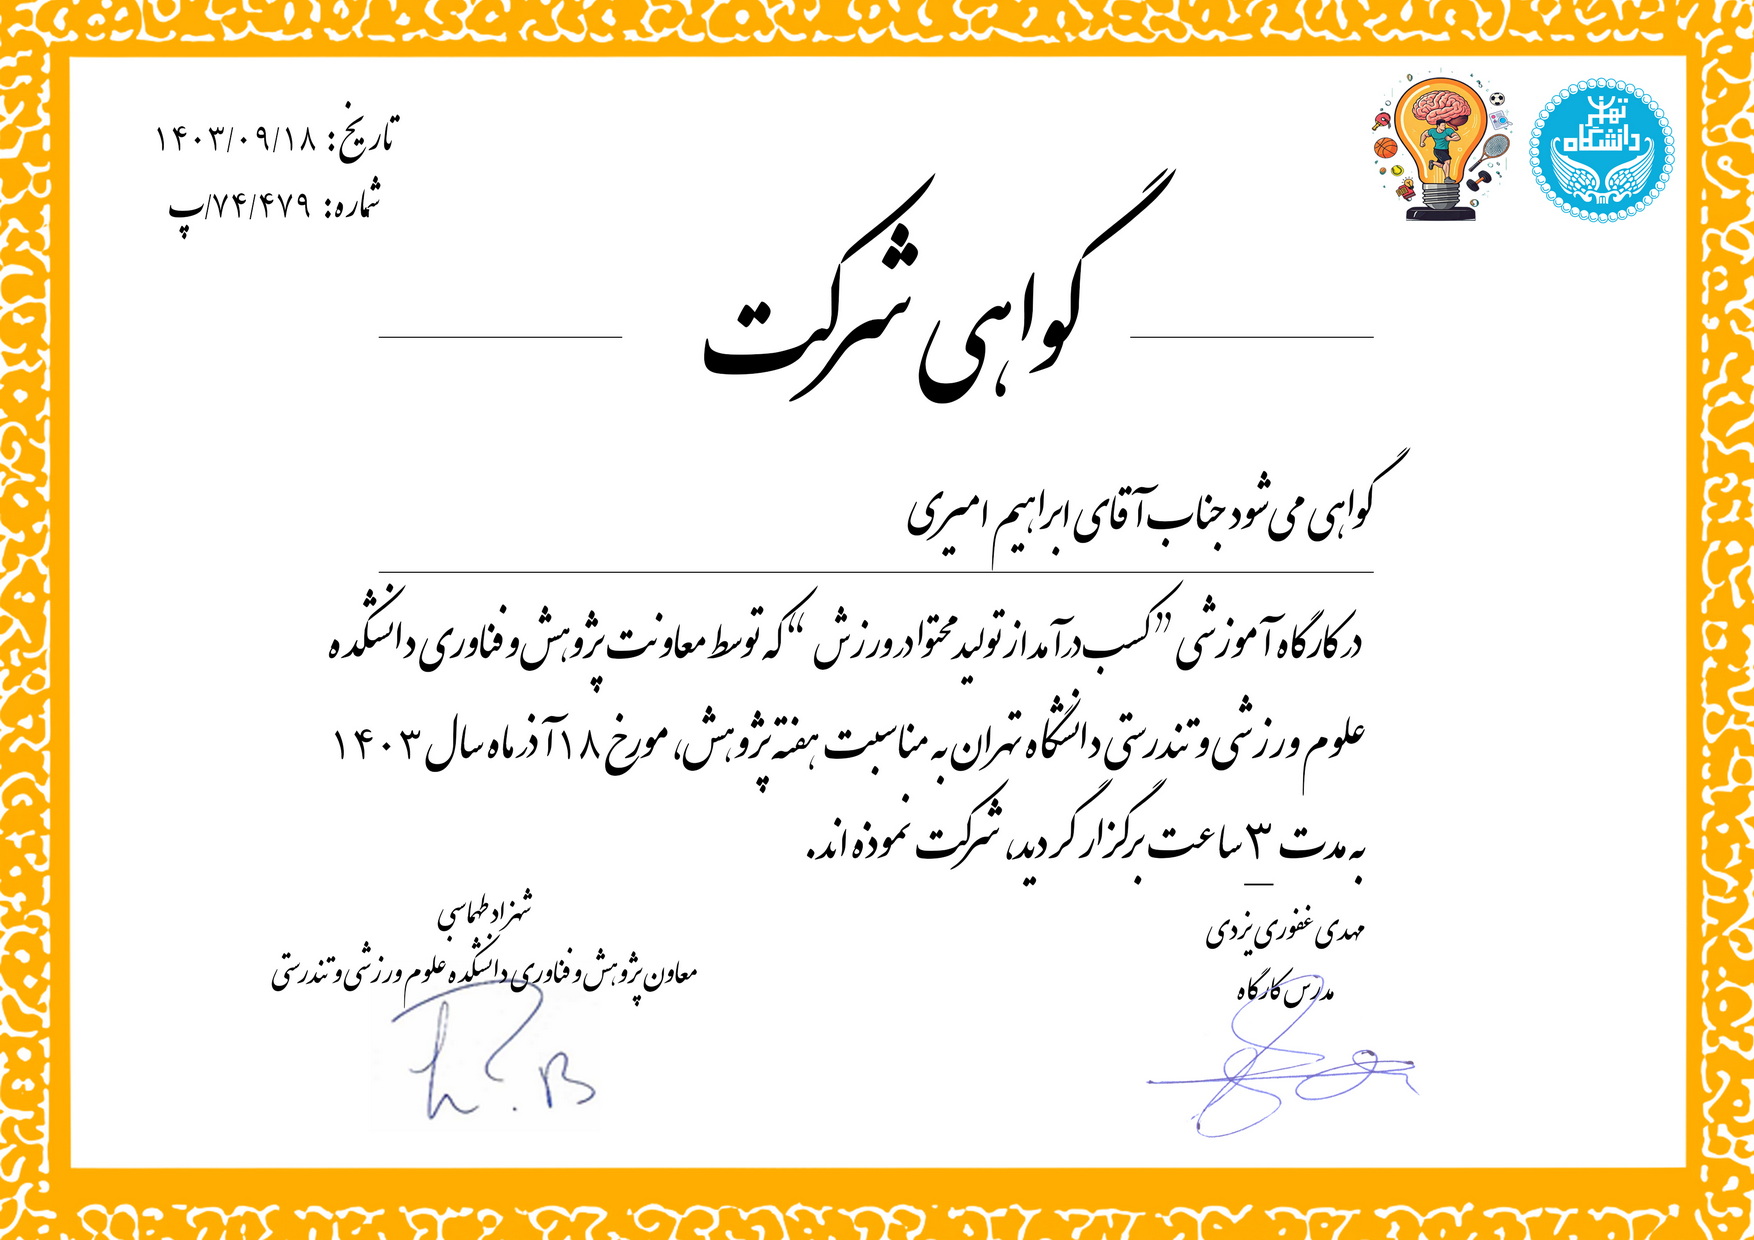 تهران
دانشگاه
تاریخ: ۱۴۰۳/۰۹/۱۸
شماره: ۷۴/۴۷۹/پ
گواهی شرکت
گواهی می شود جناب آقای ابراهیم امیری
در کارگاه آموزشی ”کسب درآمد از تولید محتوا در ورزش “ که توسط معاونت پژوهش و فناوری دانشکده
علوم ورزشی و تندرستی دانشگاه تهران به مناسبت هفته پژوهش، مورخ ۱۸ آذر ماه سال ۱۴۰۳
به مدت ۳ ساعت برگزار گردید، شرکت نموذه اند.
مهدی غفوری یزدی
مدرس کارگاه
شهزاد طهماسبی
معاون پژوهش و فناوری دانشکده علوم ورزشی و تندرستی